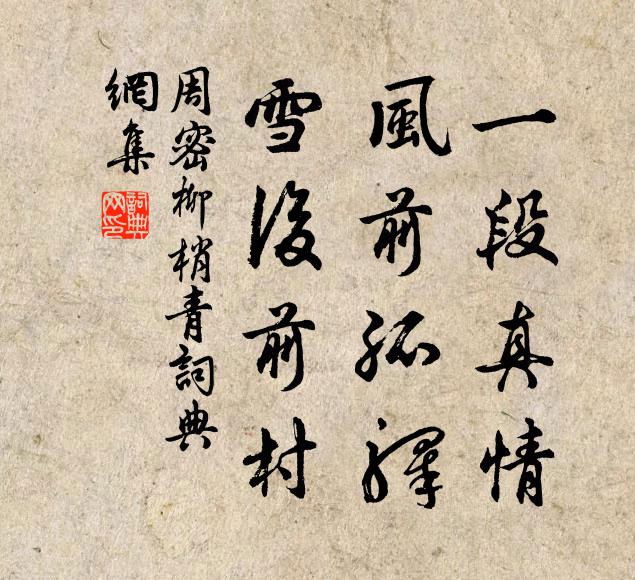 一段真情
風前孤驛
雪後前村
周密柳梢青詞典
網集
詞典
网印